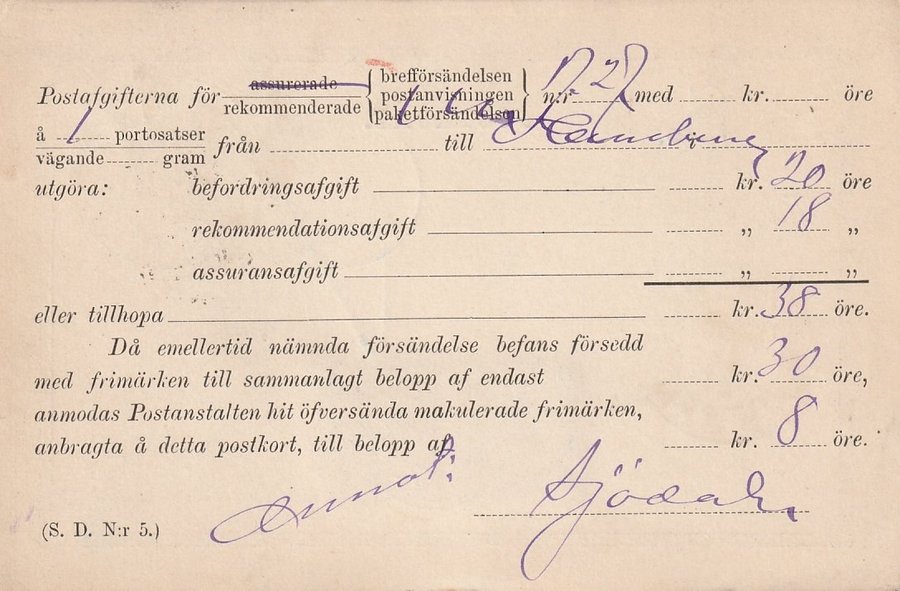 Postafgifterna för assurerade rekommenderade { brefförsändelsen postanvisningen paketförsändelsen } n:r 27 med kr. öre
å 1 portosatser vägande gram från till
utgöra: befordringsafgift kr. 20 öre
rekommendationsafgift „ 18 „
assuransafgift „ „
eller tillhopa kr. 38 öre.
Då emellertid nämnda försändelse befans försedd
med frimärken till sammanlagt belopp af endast kr. 30 öre,
anmodas Postanstalten hit öfversända makulerade frimärken,
anbragta å detta postkort, till belopp af kr. 8 öre.
(S. D. N:r 5.)